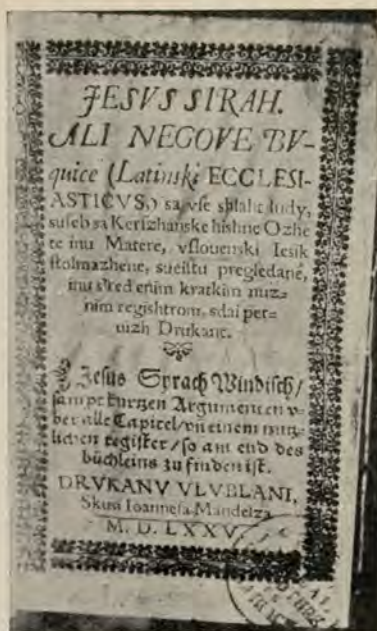 JESVS SIRAH.
ALI NEGOVE BV-
quice (Latinski ECCLESI-
ASTICVS.) sa vſe shlaht ludy,
suſeb sa Kerſzhanske hiſhne Ozhe
te inu Matere, vſlovenski Ieſik
ſtolmazhene, sveiſtu pregledane,
inu s'red enim kratkim nuz-
nim regiſhtrom, sdai per-
vizh Drukane.
Jeſus Syrach Windiſch/
ſampt kurtzen Argumenten v-
ber alle Capitel/ vñ einem nutz-
lichen regiſter/ ſo am end des
büchleins zu finden iſt.
DRVKANV VLVBLANI,
Skusi Ioanneſa Mandelza
M. D. LXXV.